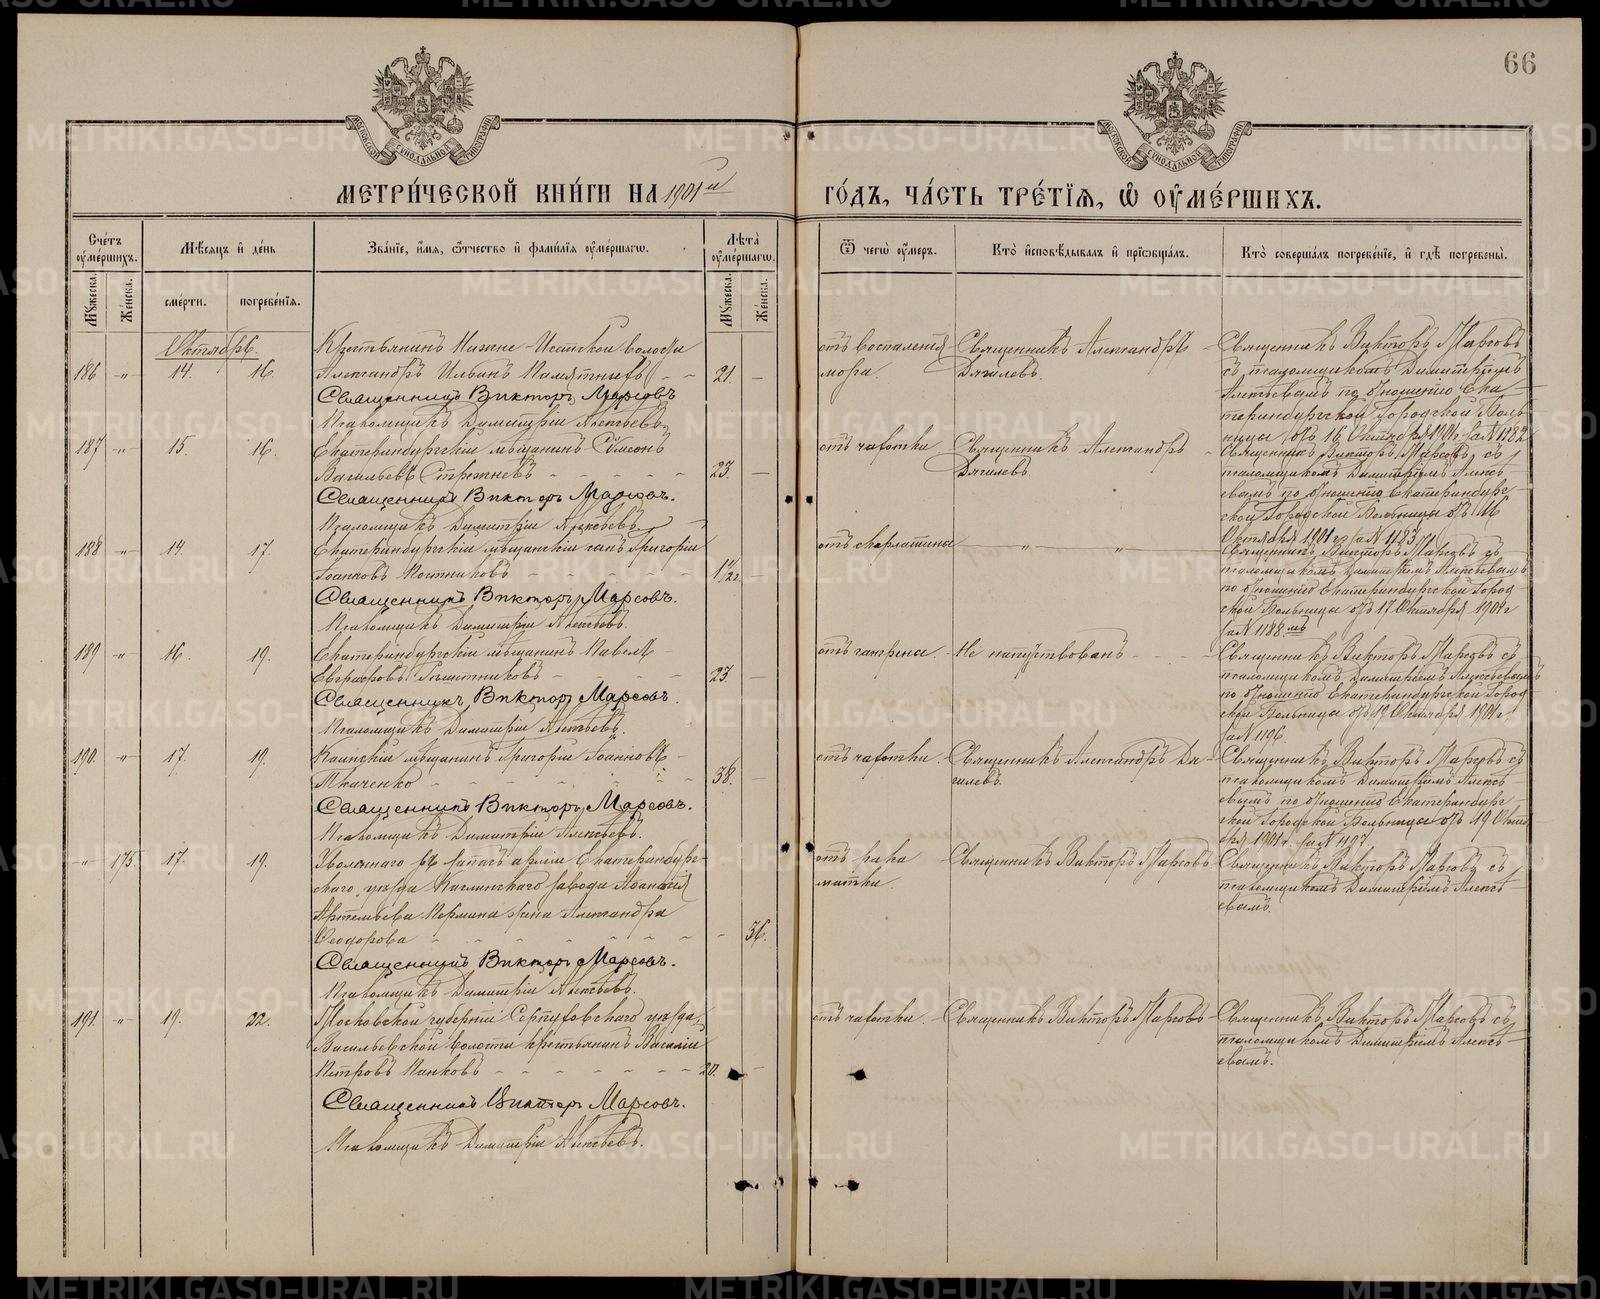 66
МЕТРИ́ЧЕСКОЙ КНИ́ГИ НА 1901й
ГО́ДЪ, ЧА́СТЬ ТРЕ́ТІѦ, Ѿ ОУМЕ́РШИХЪ.
Сче́тъ оуме́ршихъ.
Мѣ́сяцъ и де́нь
Зва́ніе, и́мя, о́тчество и фами́лія оуме́ршаго.
Лѣ́та оуме́ршаго.
Ѿ чего̀ оу́меръ.
Кто̀ исповѣ́дывалъ и пріобща́лъ.
Кто̀ соверша́лъ погребе́ніе, и гдѣ̀ погребены̀.
Мꙋ́жеска.
Же́нска.
сме́рти.
погребе́нія.
Мꙋ́жеска.
Же́нска.
Октябрь.
186 " 14. 16.
Крестьянинъ Нижне-Исетской волости
Александръ Ильинъ 21. —
Священникъ Викторъ Марсовъ
Псаломщикъ Димитрій Алексѣевъ.
отъ воспаленія
мозга.
Священникъ Александръ
Дягилевъ.
Священникъ Викторъ Марсовъ
съ псаломщикомъ Димитріемъ
Алексѣевымъ по отношенію Ека
теринбургской Городской Боль
ницы отъ 16 Октября 1901 г. за № 1182
187 " 15. 16.
Екатеринбургскій мѣщанинъ Симеонъ
Васильевъ Стрижневъ 23. —
Священникъ Викторъ Марсовъ.
Псаломщикъ Димитрій Алексѣевъ
отъ чахотки
Священникъ Александръ
Дягилевъ.
Священникъ Викторъ Марсовъ съ
псаломщикомъ Димитріемъ Алексѣ
евымъ по отношенію Екатеринбург
ской Городской Больницы отъ 16
Октября 1901 г. за № 1183
188 " 14. 17.
Екатеринбургскій мѣщанскій сынъ Григорій
Іоанновъ Постниковъ 1 1/2 г. —
Священникъ Викторъ Марсовъ.
Псаломщикъ Димитрій Алексѣевъ.
отъ скарлатины
" "
Священникъ Викторъ Марсовъ съ
псаломщикомъ Димитріемъ Алексѣевымъ
по отношенію Екатеринбургской Город
ской Больницы отъ 17 Октября 1901 г
за № 1188мъ
189 " 16. 19.
Екатеринбургскій мѣщанинъ Павелъ
Евграфовъ 23. —
Священникъ Викторъ Марсовъ.
Псаломщикъ Димитрій Алексѣевъ.
Не напутствованъ
Священникъ Викторъ Марсовъ съ
псаломщикомъ Димитріемъ Алексѣевымъ
по отношенію Екатеринбургской Город
ской Больницы отъ 19 Октября 1901 г.
за № 1196
190. " 17. 19.
Каинскій мѣщанинъ Григорій Іоанновъ
Ткаченко 38. —
Священникъ Викторъ Марсовъ.
Псаломщикъ Димитрій Алексѣевъ.
отъ чахотки
Священникъ Александръ Дя
гилевъ.
Священникъ Викторъ Марсовъ съ
псаломщикомъ Димитріемъ Алексѣ
евымъ по отношенію Екатеринбург
ской Городской Больницы отъ 19 Октя
бря 1901 г. за № 1197
" 175. 17. 19.
Уволеннаго въ запасъ арміи Екатеринбург-
скаго уѣзда Каслинскаго завода
Артемьева жена Александра
Ѳеодорова 36.
Священникъ Викторъ Марсовъ.
Псаломщикъ Димитрій Алексѣевъ.
отъ рака
матки.
Священникъ Викторъ Марсовъ
Священникъ Викторъ Марсовъ съ
псаломщикомъ Димитріемъ Алексѣ
евымъ.
191. " 19. 22.
Московской губерніи Серпуховскаго уѣзда,
Васильевской волости крестьянинъ Василій
Петровъ Панковъ 20. —
Священникъ Викторъ Марсовъ.
Псаломщикъ Димитрій Алексѣевъ.
отъ чахотки
Священникъ Викторъ Марсовъ
Священникъ Викторъ Марсовъ съ
псаломщикомъ Димитріемъ Алексѣ
евымъ.
METRIKI.GASO-URAL.RU